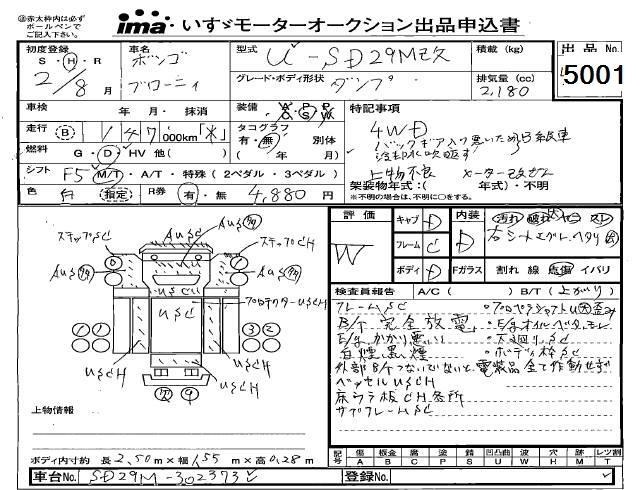 ※赤太枠内は必ずボールペンでご記入下さい。
ima・いすゞモーターオークション出品申込書
初度登録 S・H・R 2/8月
車名 ボンゴ ブローニィ
型式 U-SD29M改
グレード・ボディ形状 ダンプ
積載(kg)
排気量(cc) 2,180
出品No. 5001
車検 年 月・抹消
走行 000km「米」
燃料 G・D・HV 他( )
シフト F5 M/T・A/T・特殊(2ペダル・3ペダル)
色 白 (指定) R券 有・無 4,880円
装備
タコグラフ 有・無 別体 ( 年 月)
特記事項
4WD
バックギア入り悪いため3級車
冷却水吹返す
上物不良 メーター改ざん
架装物年式:( 年式)・不明
※不明の場合は、不明に○をする。
評価 W
キャブ D
フレーム C
ボディ D
内装 D
汚れ 破れ
右シート
Fガラス 割れ 線 点傷 イバリ
検査員報告 A/C( ) B/T(上がり)
フレームSC
B/T完全放電
E/gかかり悪い
白煙黒煙
外部B/Tつないでないと電装品全て作動せず
ベッセルUSCH
床ウラ板CH各所
サブフレームUSC
・プロペラシャフトU大歪み
・E/gオイルベタモレ
・下廻りSC
・ボディ枠SC
ステップSC
AUSC
ステップSCH
USCU
プロテクターUSCH
USC
USCH
USCH
上物情報
ボディ内寸約 長2,50m×幅1,55m×高0,28m
記号 傷 A 板金 B 腐 C 塗 P 錆 S 凹凸曲 U 波 W 穴 H 跡 M レツ割 T
車台No. SD29M-302373
登録No.